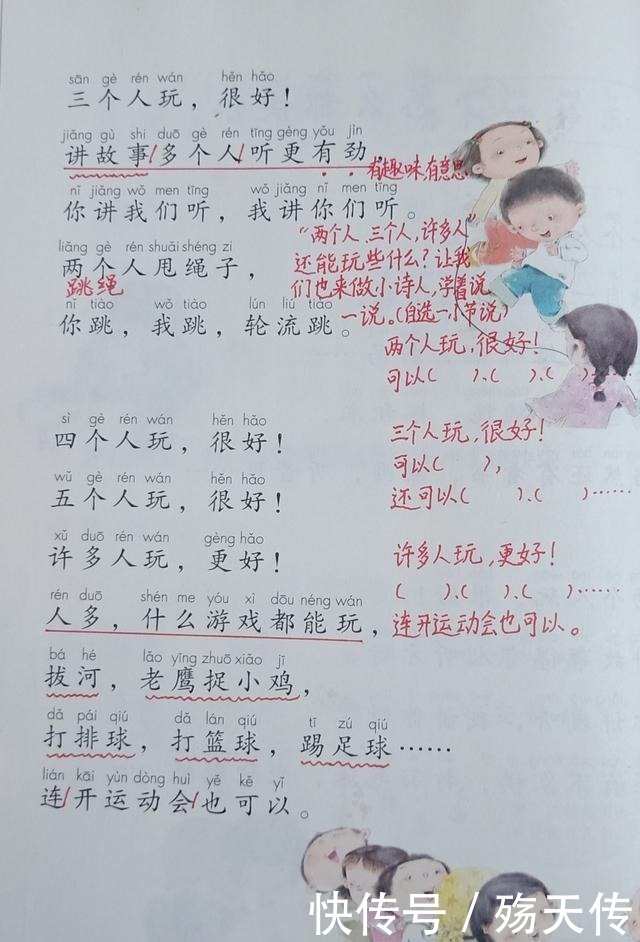 sān gè rén wán hěn hǎo
三个人玩，很好！
jiǎng gù shi duō gè rén tīng gèng yǒu jìn
讲故事/多个人/听更有劲，
有趣味，有意思
nǐ jiǎng wǒ men tīng wǒ jiǎng nǐ men tīng
你讲我们听，我讲你们听。
liǎng gè rén shuǎi shéng zi
两个人甩绳子，
跳绳
nǐ tiào wǒ tiào lún liú tiào
你跳，我跳，轮流跳。
“两个人、三个人，许多人”
还能玩些什么？让我
们也来做小诗人，学着说
一说。（自选一小节说）
两个人玩，很好！
可以（ ）、（ ）、（ ）……
sì gè rén wán hěn hǎo
四个人玩，很好！
wǔ gè rén wán hěn hǎo
五个人玩，很好！
xǔ duō rén wán gèng hǎo
许多人玩，更好！
rén duō shén me yóu xì dōu néng wán
人多，什么游戏都能玩，
三个人玩，很好！
可以（ ），
还可以（ ）、（ ）……
许多人玩，更好！
（ ）、（ ）、（ ）……
连开运动会也可以。
bá hé lǎo yīng zhuō xiǎo jī
拔河，老鹰捉小鸡，
dǎ pái qiú dǎ lán qiú tī zú qiú
打排球，打篮球，踢足球……
lián kāi yùn dòng huì yě kě yǐ
连/开运动会/也可以。
快传号／殇天传